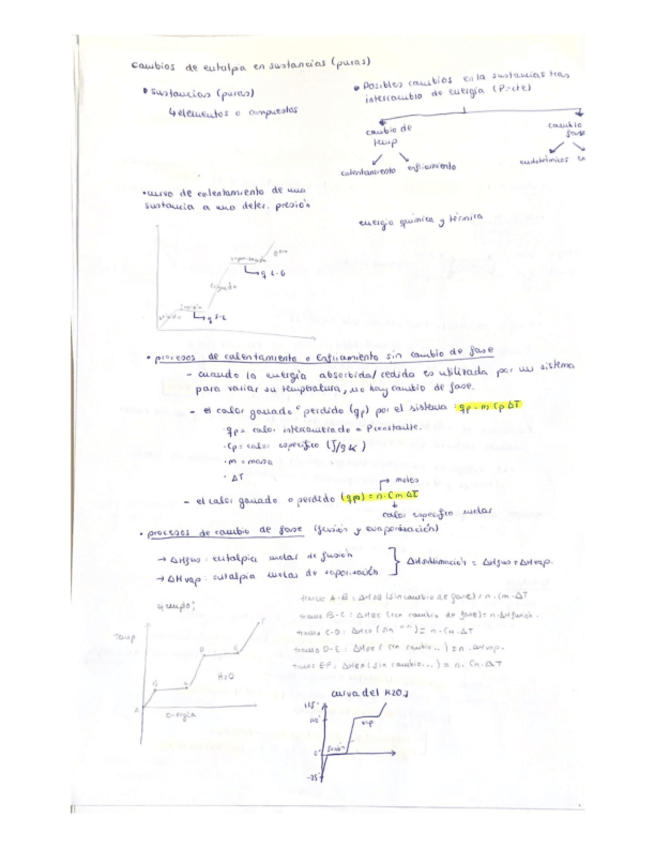 cambios de entalpia en sustancias (puras)
• sustancias (puras)
↳ elementos o compuestos
• Posibles cambios en la sustancias tras
intercambio de energía (P=cte)
cambio de
temp
cambio
fase
calentamiento enfriamiento
endotérmicos
• curva de calentamiento de una
sustancia a una deter. presión
energia química y térmica
gas
vaporización
q L-G
líquido
fusión
q S-L
sólido
• procesos de calentamiento o enfriamiento sin cambio de fase
- cuando la energía absorbida/cedida es utilizada por un sistema
para variar su temperatura, no hay cambio de fase.
- el calor ganado o perdido (qp) por el sistema: qp = m·Cp ΔT
· qp = calor intercambiado a P constante.
· Cp = calor específico (J/gK)
· m = masa
· ΔT
→ moles
- el calor ganado o perdido (qp) = n·Cm ΔT
calor específico molar
• procesos de cambio de fase (fusión y evaporización)
→ ΔHfus: entalpia molar de fusión
→ ΔHvap: entalpia molar de vaporización
ΔHsublimación = ΔHfus + ΔHvap.
ejemplo:
tramo A-B: ΔHAB (sin cambio de fase) = n·Cm·ΔT
tramo B-C: ΔHBC (con cambio de fase) = n·ΔHfusión.
tramo C-D: ΔHCD (sin " ") = n·Cm·ΔT
tramo D-E: ΔHDE (con cambio..) = n·ΔHvap.
tramo EF: ΔHEF (sin cambio...) = n·Cm·ΔT
Temp
F
D
E
B
H2O
A
energía
curva del H2O
100°
vap
0°
fusión
-25°